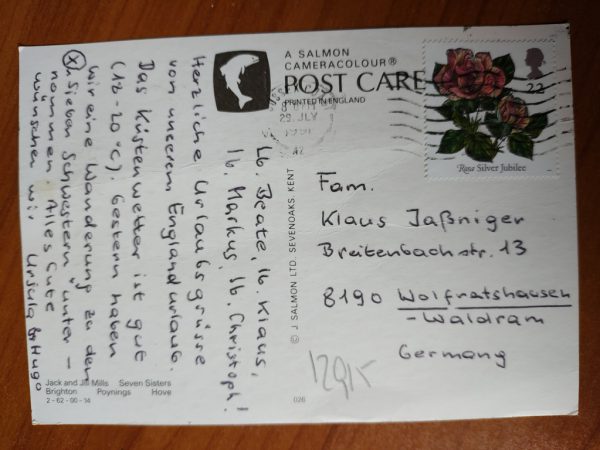 A SALMON
CAMERACOLOUR®
POST CARD
PRINTED IN ENGLAND
22
Rose Silver Jubilee
29 JLY
Lb. Beate, lb. Klaus,
lb. Markus, lb. Christoph!
Herzliche Urlaubsgrüsse
von unserem Englandurlaub.
Das Küstenwetter ist gut
(12-20 °C). Gestern haben
wir eine Wanderung zu den
"Sieben Schwestern" unter-
nommen. Alles Gute
wünschen wir Ursula & Hugo
Fam.
Klaus Jaßniger
Breitenbachstr. 13
8190 Wolfratshausen
-Waldram
Germany
© J SALMON LTD. SEVENOAKS. KENT
Jack and Jill Mills Seven Sisters
Brighton Poynings Hove
2-62-00-14
026